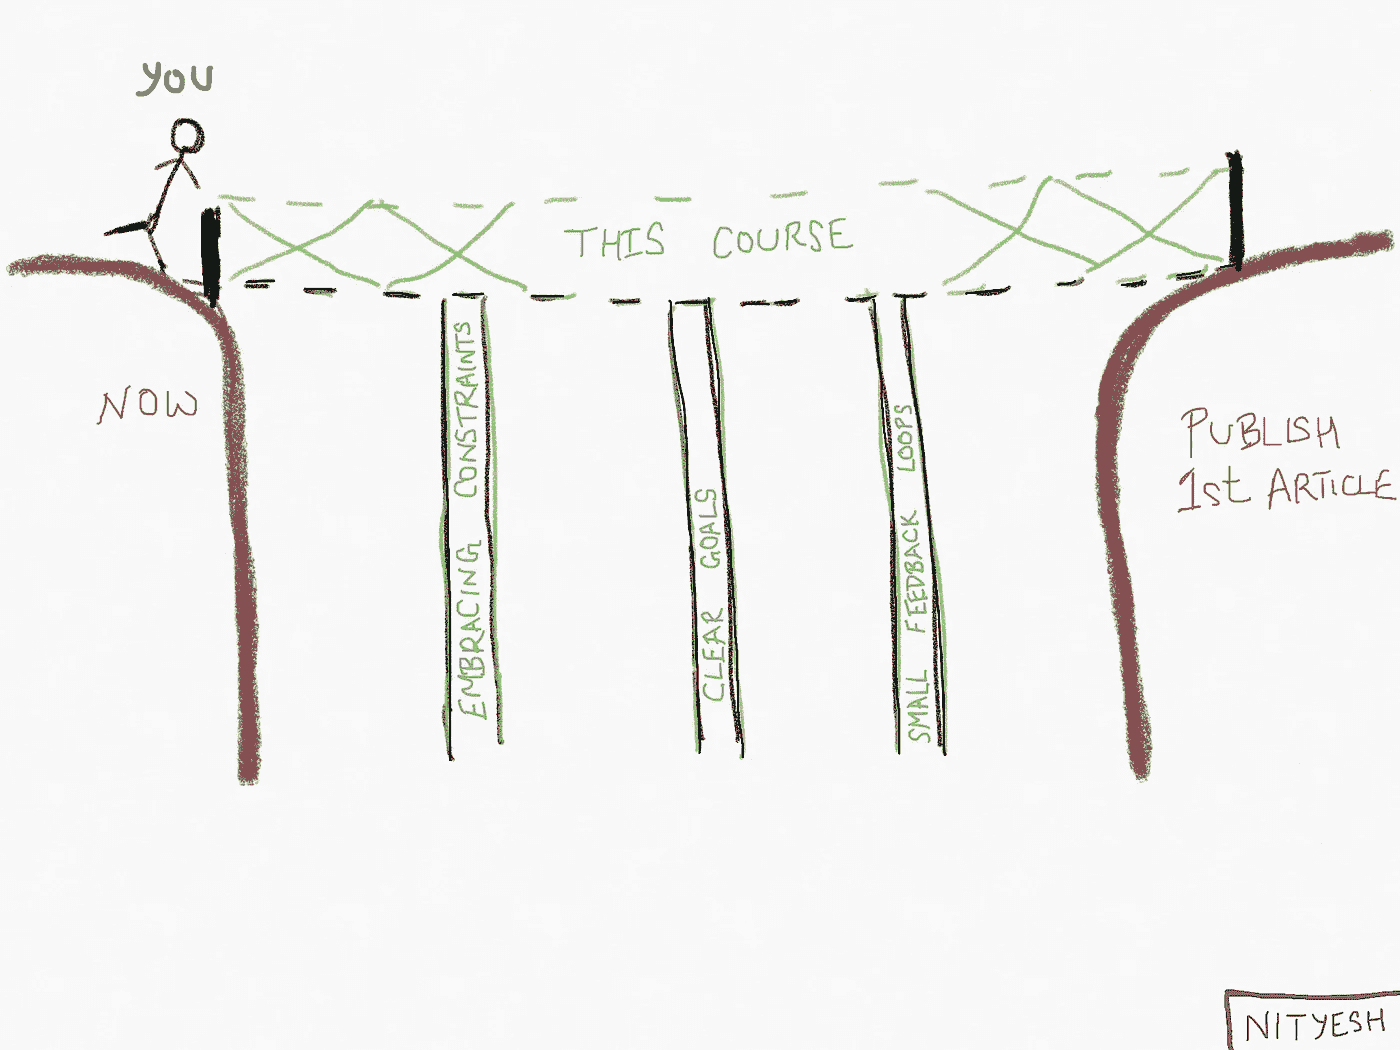 YOU
THIS COURSE
NOW
EMBRACING CONSTRAINTS
CLEAR GOALS
SMALL FEEDBACK LOOPS
PUBLISH
1st ARTICLE
NITYESH